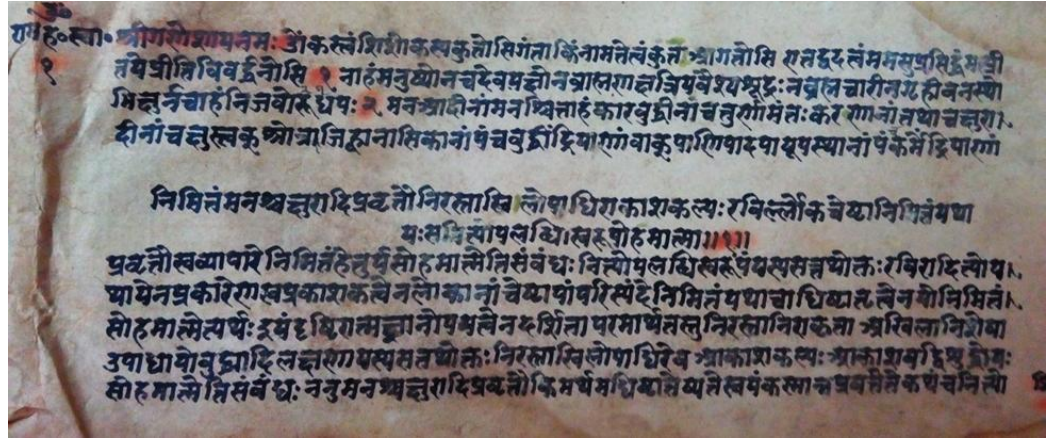 श्रीगणेशायनमः ॐ कस्त्वंशिशोकस्यकुतोसिगंताकिंनामतेत्वंकुतआगतोसि एतद्वदत्वंममसुप्रसिद्धंमत्प्री
१ तयेप्रीतिविवर्द्धनोसि १ नाहंमनुष्योनचदेवयक्षौनब्राह्मणक्षत्रियवैश्यशूद्रः नब्रह्मचारीनगृहीवनस्थो
भिक्षुर्नचाहंनिजबोधरूपः २ मनआदीनांमनश्चित्ताहंकारबुद्धीनांचतुर्णामंतःकरणानांतथाचक्षुरा
दीनांचक्षुस्त्वक्श्रोत्रजिह्वानासिकानांपंचबुद्धींद्रियाणांवाक्पाणिपादपायूपस्थानांपंचकर्मेंद्रियाणां
निमित्तंमनश्चक्षुरादिप्रवृत्तौनिरस्ताखिलोपाधिराकाशकल्पः रविर्ल्लोकचेष्टानिमित्तंयथा
यःसनित्योपलब्धिस्वरूपोहमात्मा॥१॥
प्रवृत्तौस्वव्यापारेनिमित्तंहेतुर्यःसोहमात्मेतिसंबंधः नित्योपलब्धिस्वरूपंयस्यसतथोक्तः रविरादित्योय
थायेनप्रकारेणस्वप्रकाशकत्वेनलोकानांचेष्टायांपरिस्पंदेनिमित्तंयथाचाधिष्ठातृत्वेनयोनिमित्तं
सोहमात्मेत्यर्थः इयंदृष्टिरात्मज्ञानोपायत्वेनदर्शितापरमार्थतस्तुनिरस्तानिराकृताअखिलानिःशेषा
उपाधयोबुद्ध्यादिलक्षणायस्यसतथोक्तः निरस्ताखिलोपाधिरेवआकाशकल्पः आकाशवद्विशुद्धोयः
सोहमात्मेतिसंबंधः ननुमनश्चक्षुरादिप्रवृत्तौकिमर्थमधिष्ठातेष्यतेस्वयंकस्मान्नप्रवर्त्ततेकथंचनित्यो